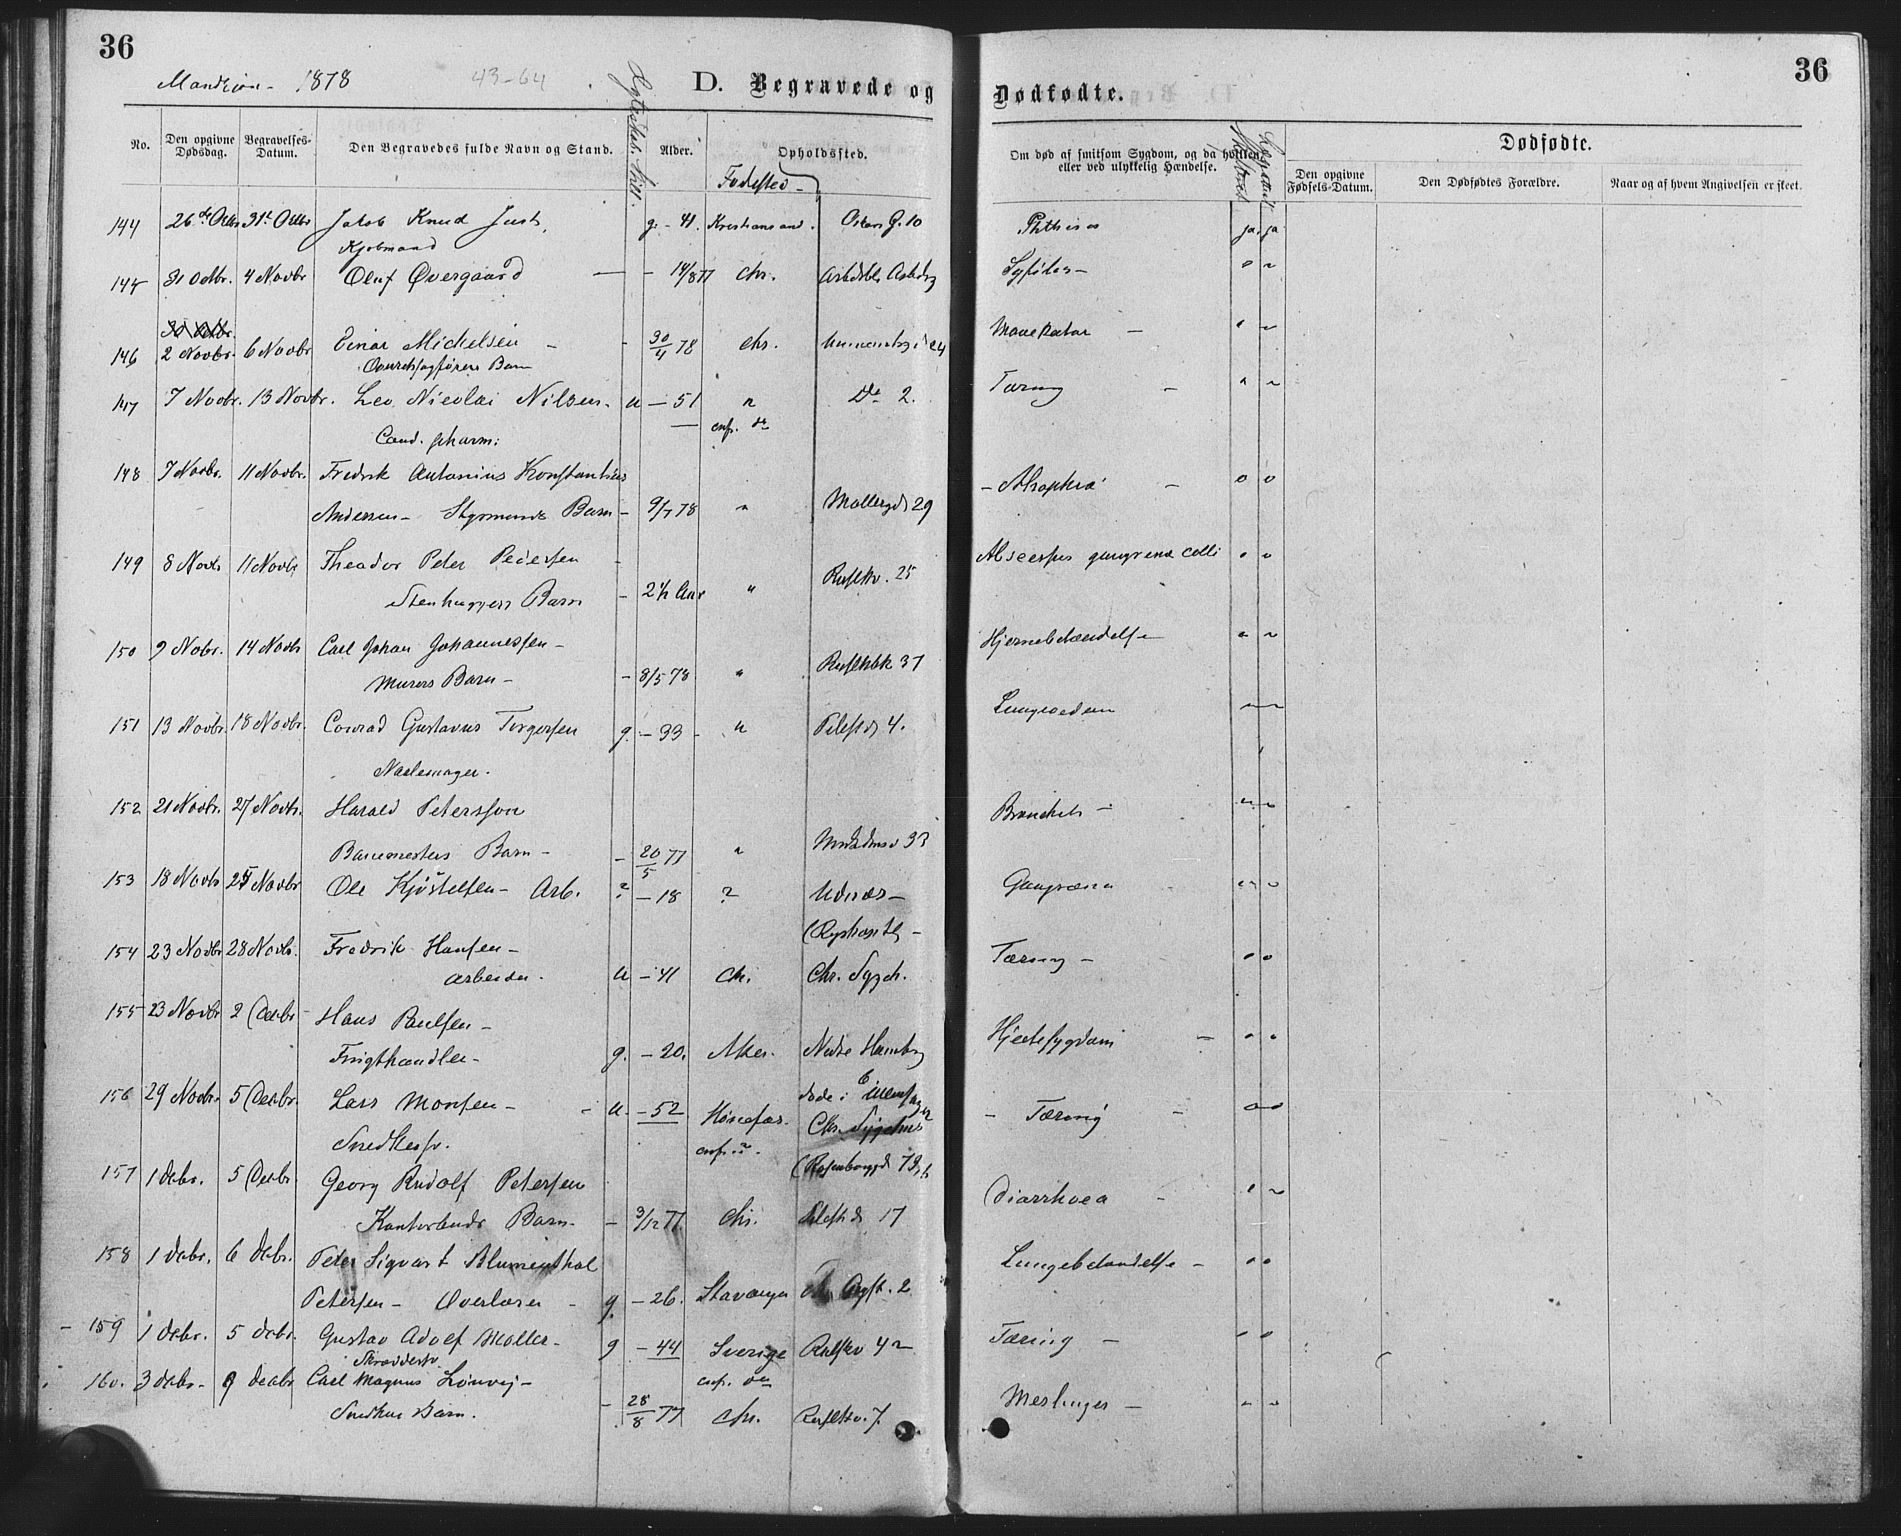 36
36
Mandkjøn - 1878
43-64
D. Begravede og Dødfødte.
No.
Den opgivne Dødsdag.
Begravelses-Datum.
Den Begravedes fulde Navn og Stand.
Alder.
Opholdssted.
Fødested -
Om død af smitsom Sygdom, og da hvilken, eller ved ulykkelig Hændelse.
Dødfødte.
Den opgivne Fødsels-Datum.
Den Dødfødtes Forældre.
Naar og af hvem Angivelsen er skeet.
144 26de Octbr 31te Octbr Jakob Knud Just, g. - 41. Kristiansand. Oskars G. 10 Phthisis ja. ja
Kjøbmand
145 31 Octbr. 4 Novbr Oluf Øvergaard - 14/8 77 Chr. Syfilis -
30 Octbr.
146 2 Novbr. 6 Novbr Einar Michelsen - 30/4 78 Chr. Mavekatar -
Barn
147 7 Novbr. 13 Novbr. Leo Nicolai Nilsen. u - 51 " Do 2. Tæring -
Cand. pharm:
148 7 Novbr. 11 Novbr. Fredrik Antonius Konstantius
Andersen - Styrmands Barn - 9/7 78 " Møllergd 29 - Atrophia -
149 8 Novbr 11 Novbr Theodor Peter Pedersen - Abscessus gangrena colli
Stenhuggers Barn - 2 1/2 Aar " 25
150 9 Nobr. 14 Novbr Carl Johan Johannessen - Hjernebetændelse
Murers Barn - - 8/5 78 " 37
151 13 Novbr. 18 Novbr. Conrad Gustavus Torgersen g. - 33 - " Pilestd 4. Lungeoedem
Naalemager.
152 21 Novbr. 27 Novbr. Harald Petersson Bronchit -
Banemesters Barn - - 20/5 77 " 33
153 18 Novbr 25 Novbr Ole Kjøstelsen - Arb. ? - 18 ? Udnæs - Gangræna
154 23 Novbr 28 Novbr. Fredrik Hansen - Tæring -
Arbeider. u - 41 Chr. Chr. Sygeh.
155 23 Novbr 2 Decbr - Hans Paulsen - Hjertesygdom -
Frugthandler - g. - 20. Aker. Nedre
156 29 Novbr. 5 Decbr. Lars Monsen - - u. - 52 Hønefos. Chr. Sygehus - Tæring -
Snedkersv.
157 1 Decbr. 5 Decbr Georg Rudolf Petersen Diarrhoea -
Kontorbuds Barn - - 3/12 77 Chr. Pilestd 17
158 1 Decbr. 6 Decbr. Peter Sigvart Blumenthal Lungebetændelse -
Petersen - Overlærer - g. - 26. Stavanger 2
159 1 Decbr. 5 Decbr. Gustav Adolf Møller - g - 44 Sverige Tæring -
Skræddersv.
160. 3 Decbr - 9 Decbr Carl Magnus Lønvej - Meslinger -
Snedkers Barn. - 28/8 77 Chr. 7.